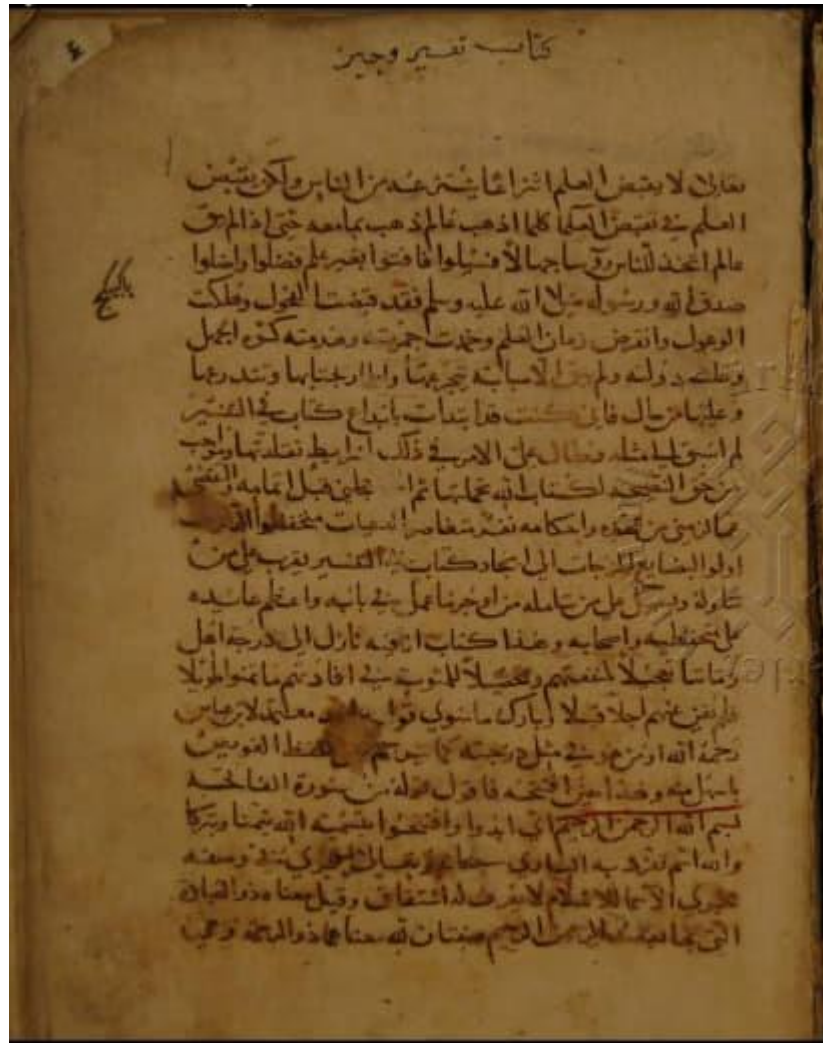 ٤
كتاب تفسير وجيز
تعالى لا يقبض العلم انتزاعا ينتزعه من الناس ولكن يقبض
العلم في قبض العلما كلما ذهب عالم ذهب بما معه حتى اذا لم يبق
عالم اتخذ الناس رؤسا جهالا فسيلوا فافتوا بغير علم فضلوا واضلوا
صدق الله ورسوله صلى الله عليه وسلم فقد قبضت الفحول وهلكت
الوعول وانقرض زمان العلم وخمدت جمرته وهزمته كرة الجهل
وعلت دولته ولم يبق الا صبابة نتجرعها واطمار نجتابها ونتدرعها
وعليها من حال فاني كنت قد ابتدات بابداع كتاب في التفسير
لم اسبق الى مثله وطال علي الامر في ذلك لشرايط تقلدتها ومواجب
من حق النصيحة لكتاب الله تحملتها ثم استعجلني قبل اتمامه والتقصي
عما لزمني من عهده واحكامه نفر متقاصروا الرغبات منخفضوا الدرجات
اولوا البضايع المزجاة الى ايجاز كتاب في التفسير يقرب على من
تناوله ويسهل على من تامله من اوجز ما عمل في بابه واعظم عايده
على متحفظيه واصحابه وهذا كتاب انا فيه نازل الى درجة اهل
زماننا تعجيلا لمنفعتهم وتحصيلا للمثوبة في افادتهم ما تمنوه طويلا
فلم يغن عنهم احد فتيلا وتارك ما سوى قول واحد معتمد لابن عباس
رحمة الله او من هو في مثل درجته كما يترجم عن اللفظ العويص
باسهل منه وهذا حين افتتحه فاقول قوله من سورة الفاتحة
بسم الله الرحمن الرحيم اي ابدوا وافتتحوا بتسمية الله تيمنا وتبركا
والله اسم تفرد به الباري سبحانه وتعالى يجري في وصفه
مجرى الاسما الاعلام لا يعرف له اشتقاق وقيل معناه ذو العبادة
التي بها يقصد الرحمن الرحيم صفتان لله معناهما ذو الرحمة وهي